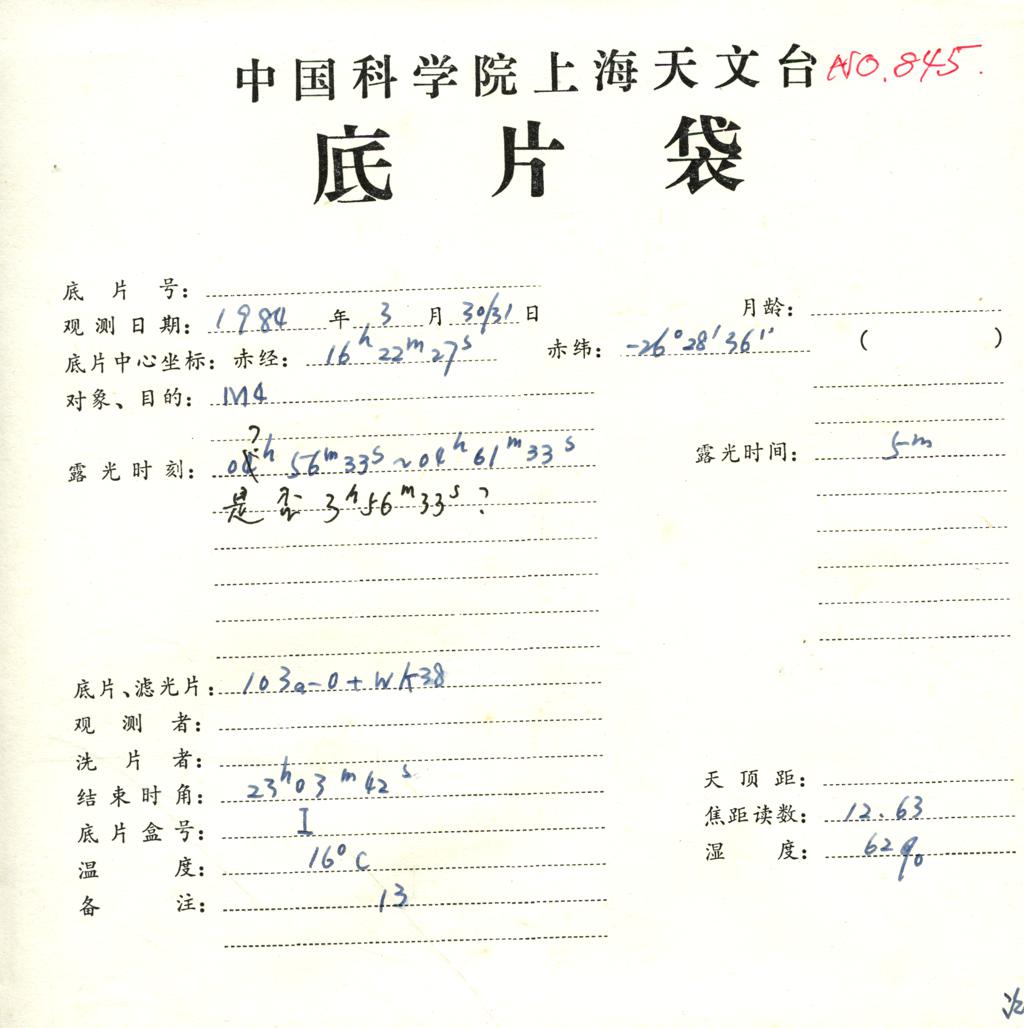 中国科学院上海天文台 NO.845.
底片袋
底片号：
观测日期：1984年3月30/31日 月龄：
底片中心坐标：赤经：16h22m27s 赤纬：-26°28′36″ ( )
对象、目的：M4
?
露光时刻：04h56m33s~04h61m33s 露光时间：5m
是否3h56m33s?
底片、滤光片：103a-O+WK38
观测者：
洗片者：
结束时角：23h03m42s 天顶距：
底片盒号：I 焦距读数：12.63
温度：16°C 湿度：62%
备注：13